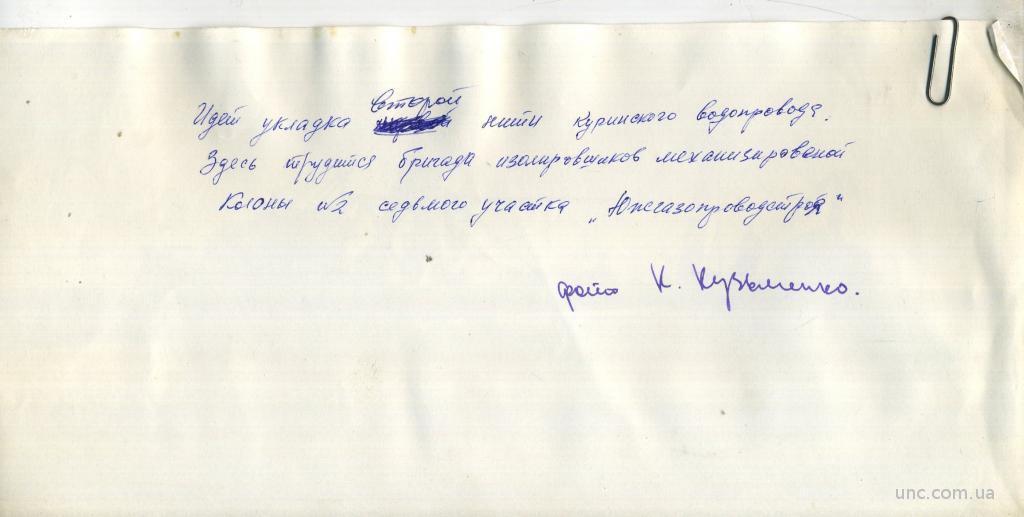 Идет укладка второй нити куринского водопровода.
Здесь трудится бригада изолировшиков механизированой
Колоны №2 седьмого участка „Южгазопроводстроя"
фото К. Кузьменко.
unc.com.ua